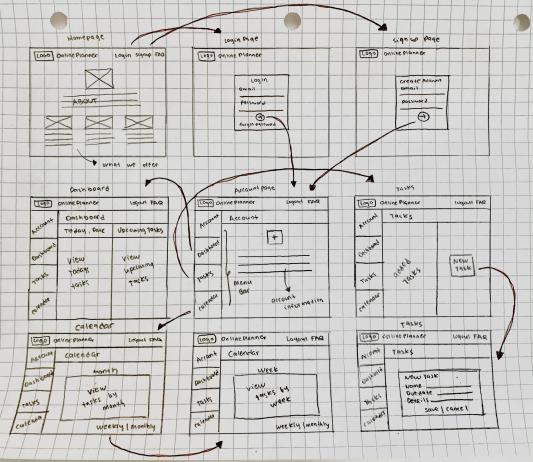 Homepage
LOGO Online Planner Login Signup FAQ
ABOUT
what we offer
Login Page
LOGO Online Planner
Login
email
Password
Forgot password
Sign up Page
LOGO Online Planner
Create Account
email
Password
Dashboard
LOGO Online Planner Logout FAQ
Account
Dashboard
Tasks
Calendar
Dashboard
Today, Date Upcoming Tasks
View
Todays
tasks
View
upcoming
Tasks
Account page
LOGO Online Planner Logout FAQ
Account
Dashboard
Tasks
Calendar
Account
+
Menu
Bar
account
information
Tasks
LOGO Online Planner Logout FAQ
Account
Dashboard
Tasks
Calendar
Tasks
Tasks
NEW
TASK
Calendar
LOGO Online Planner Logout FAQ
Account
Dashboard
Tasks
Calendar
Calendar
month
View
tasks by
month
weekly/monthly
LOGO Online Planner Logout FAQ
Account
Dashboard
Tasks
Calendar
Calendar
Week
View
tasks by
week
weekly/monthly
TASKS
LOGO Online Planner Logout FAQ
Account
Dashboard
Tasks
Calendar
Tasks
New Task
Name
Due date
Details
save | cancel